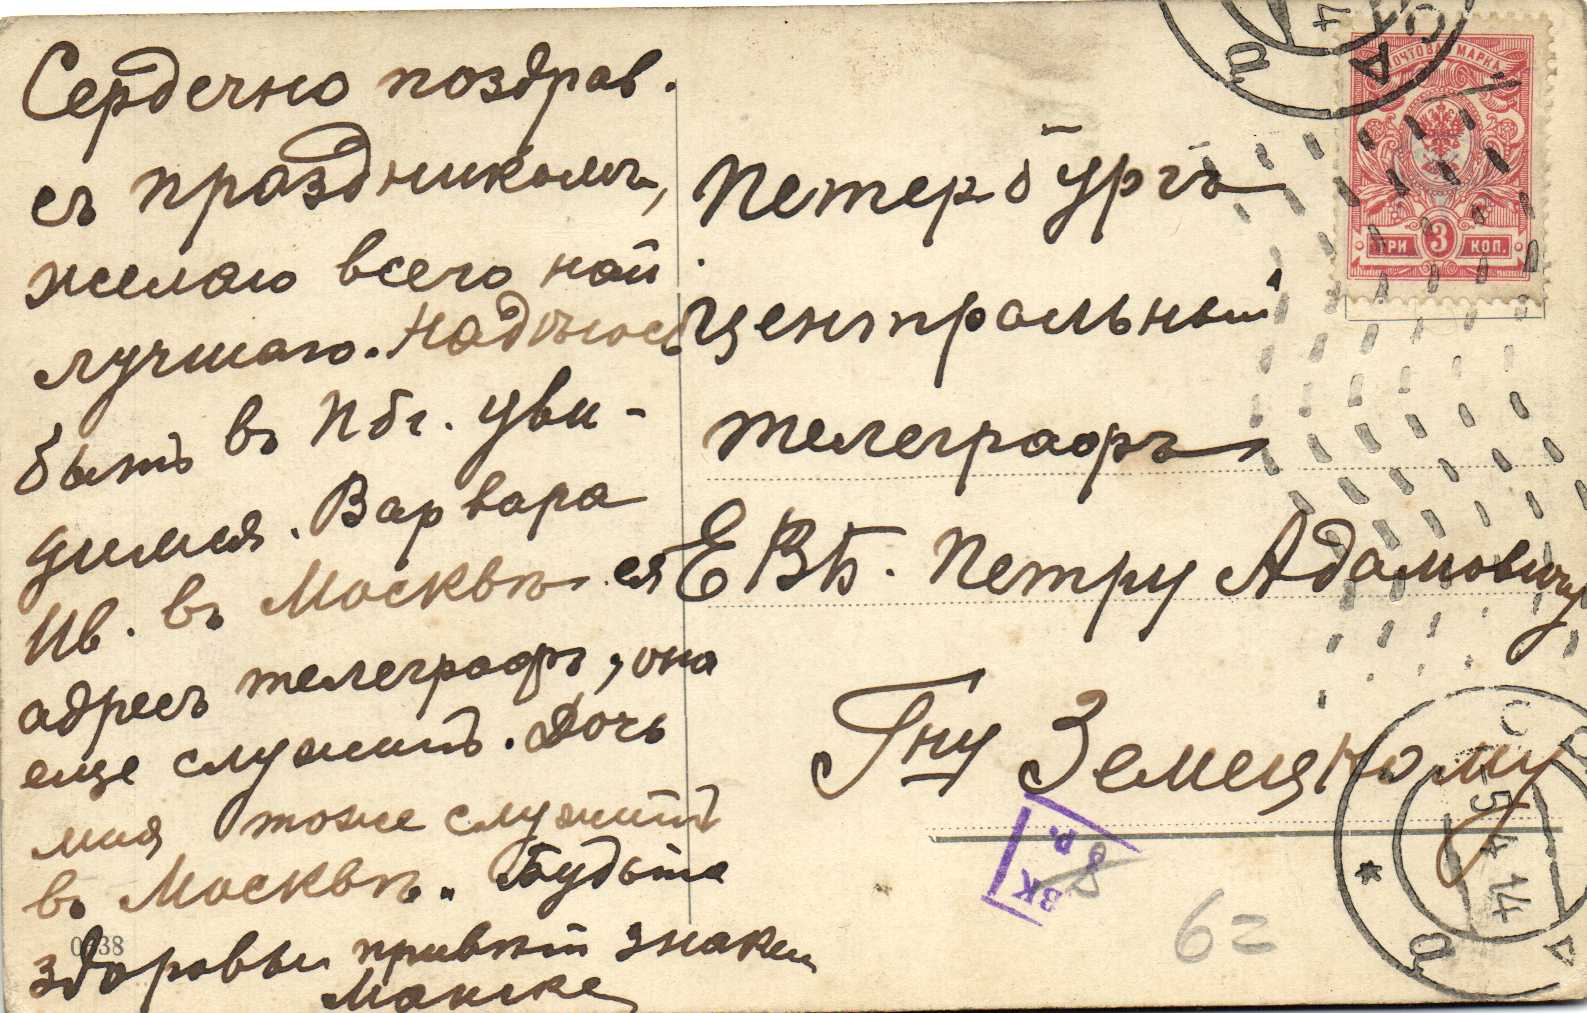 Сердечно поздрав.
съ праздникомъ,
желаю всего най
лучшаго. Надѣюсь
быть въ Пбг. уви-
димся. Варвара
Ив. въ Москвѣ. ея
адресъ телеграфъ, она
еще служитъ. Дочь
моя тоже служитъ
въ Москвѣ. Будьте
здоровы привѣтъ знаком
0138
Петербургъ
Центральный
телеграфъ
ЕВБ. Петру Адамовичу
Гну Земецкому
ПОЧТОВАЯ МАРКА
ТРИ 3 КОП.
ВК
8 р.
6=
-5 4 14